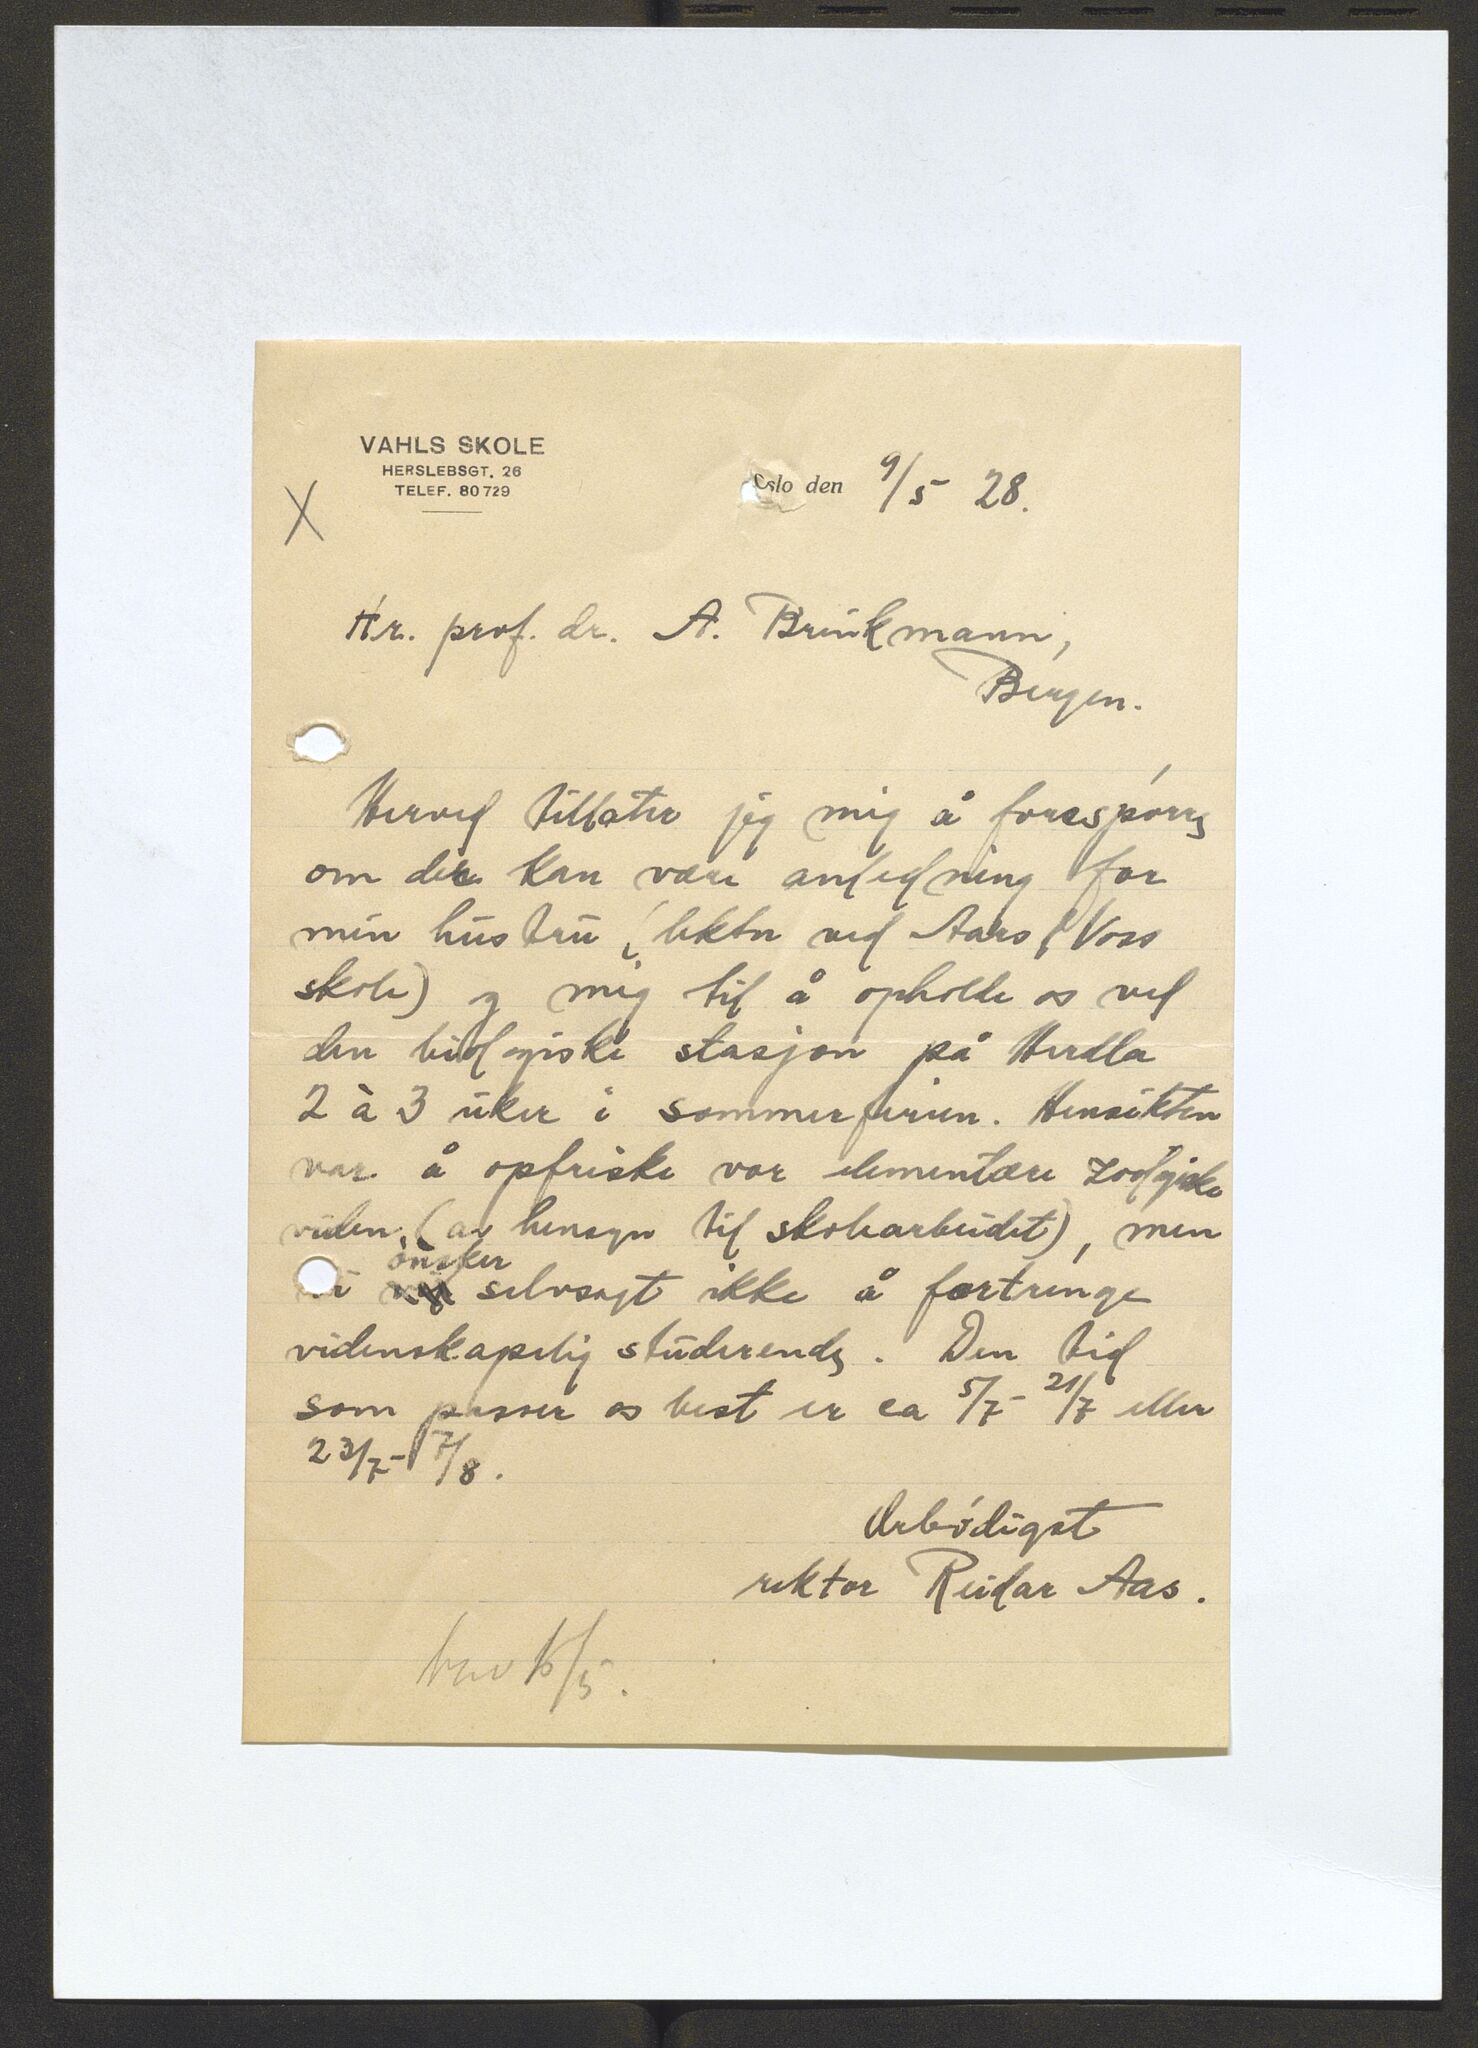 VAHLS SKOLE
HERSLEBSGT. 26
TELEF. 80729
Oslo den 9/5 28.
X
Hr. prof. dr. A. Brinkmann,
Bergen.
Herved tillater jeg mig å forespørre
om der kan være anledning for
min hustru (lektor ved Aars & Voss
skole) og mig til å opholde os ved
den biologiske stasjon på Herdla
2 à 3 uker i sommerferien. Hensikten
var å opfriske vor elementære zoologiske
viden (av hensyn til skolearbeidet), men
vi ønsker selvsagt ikke å fortrenge
videnskapelig studerende. Den tid
som passer os best er ca 5/7 - 21/7 eller
23/7 - 7/8.
Ærbødigst
rektor Reidar Aas.